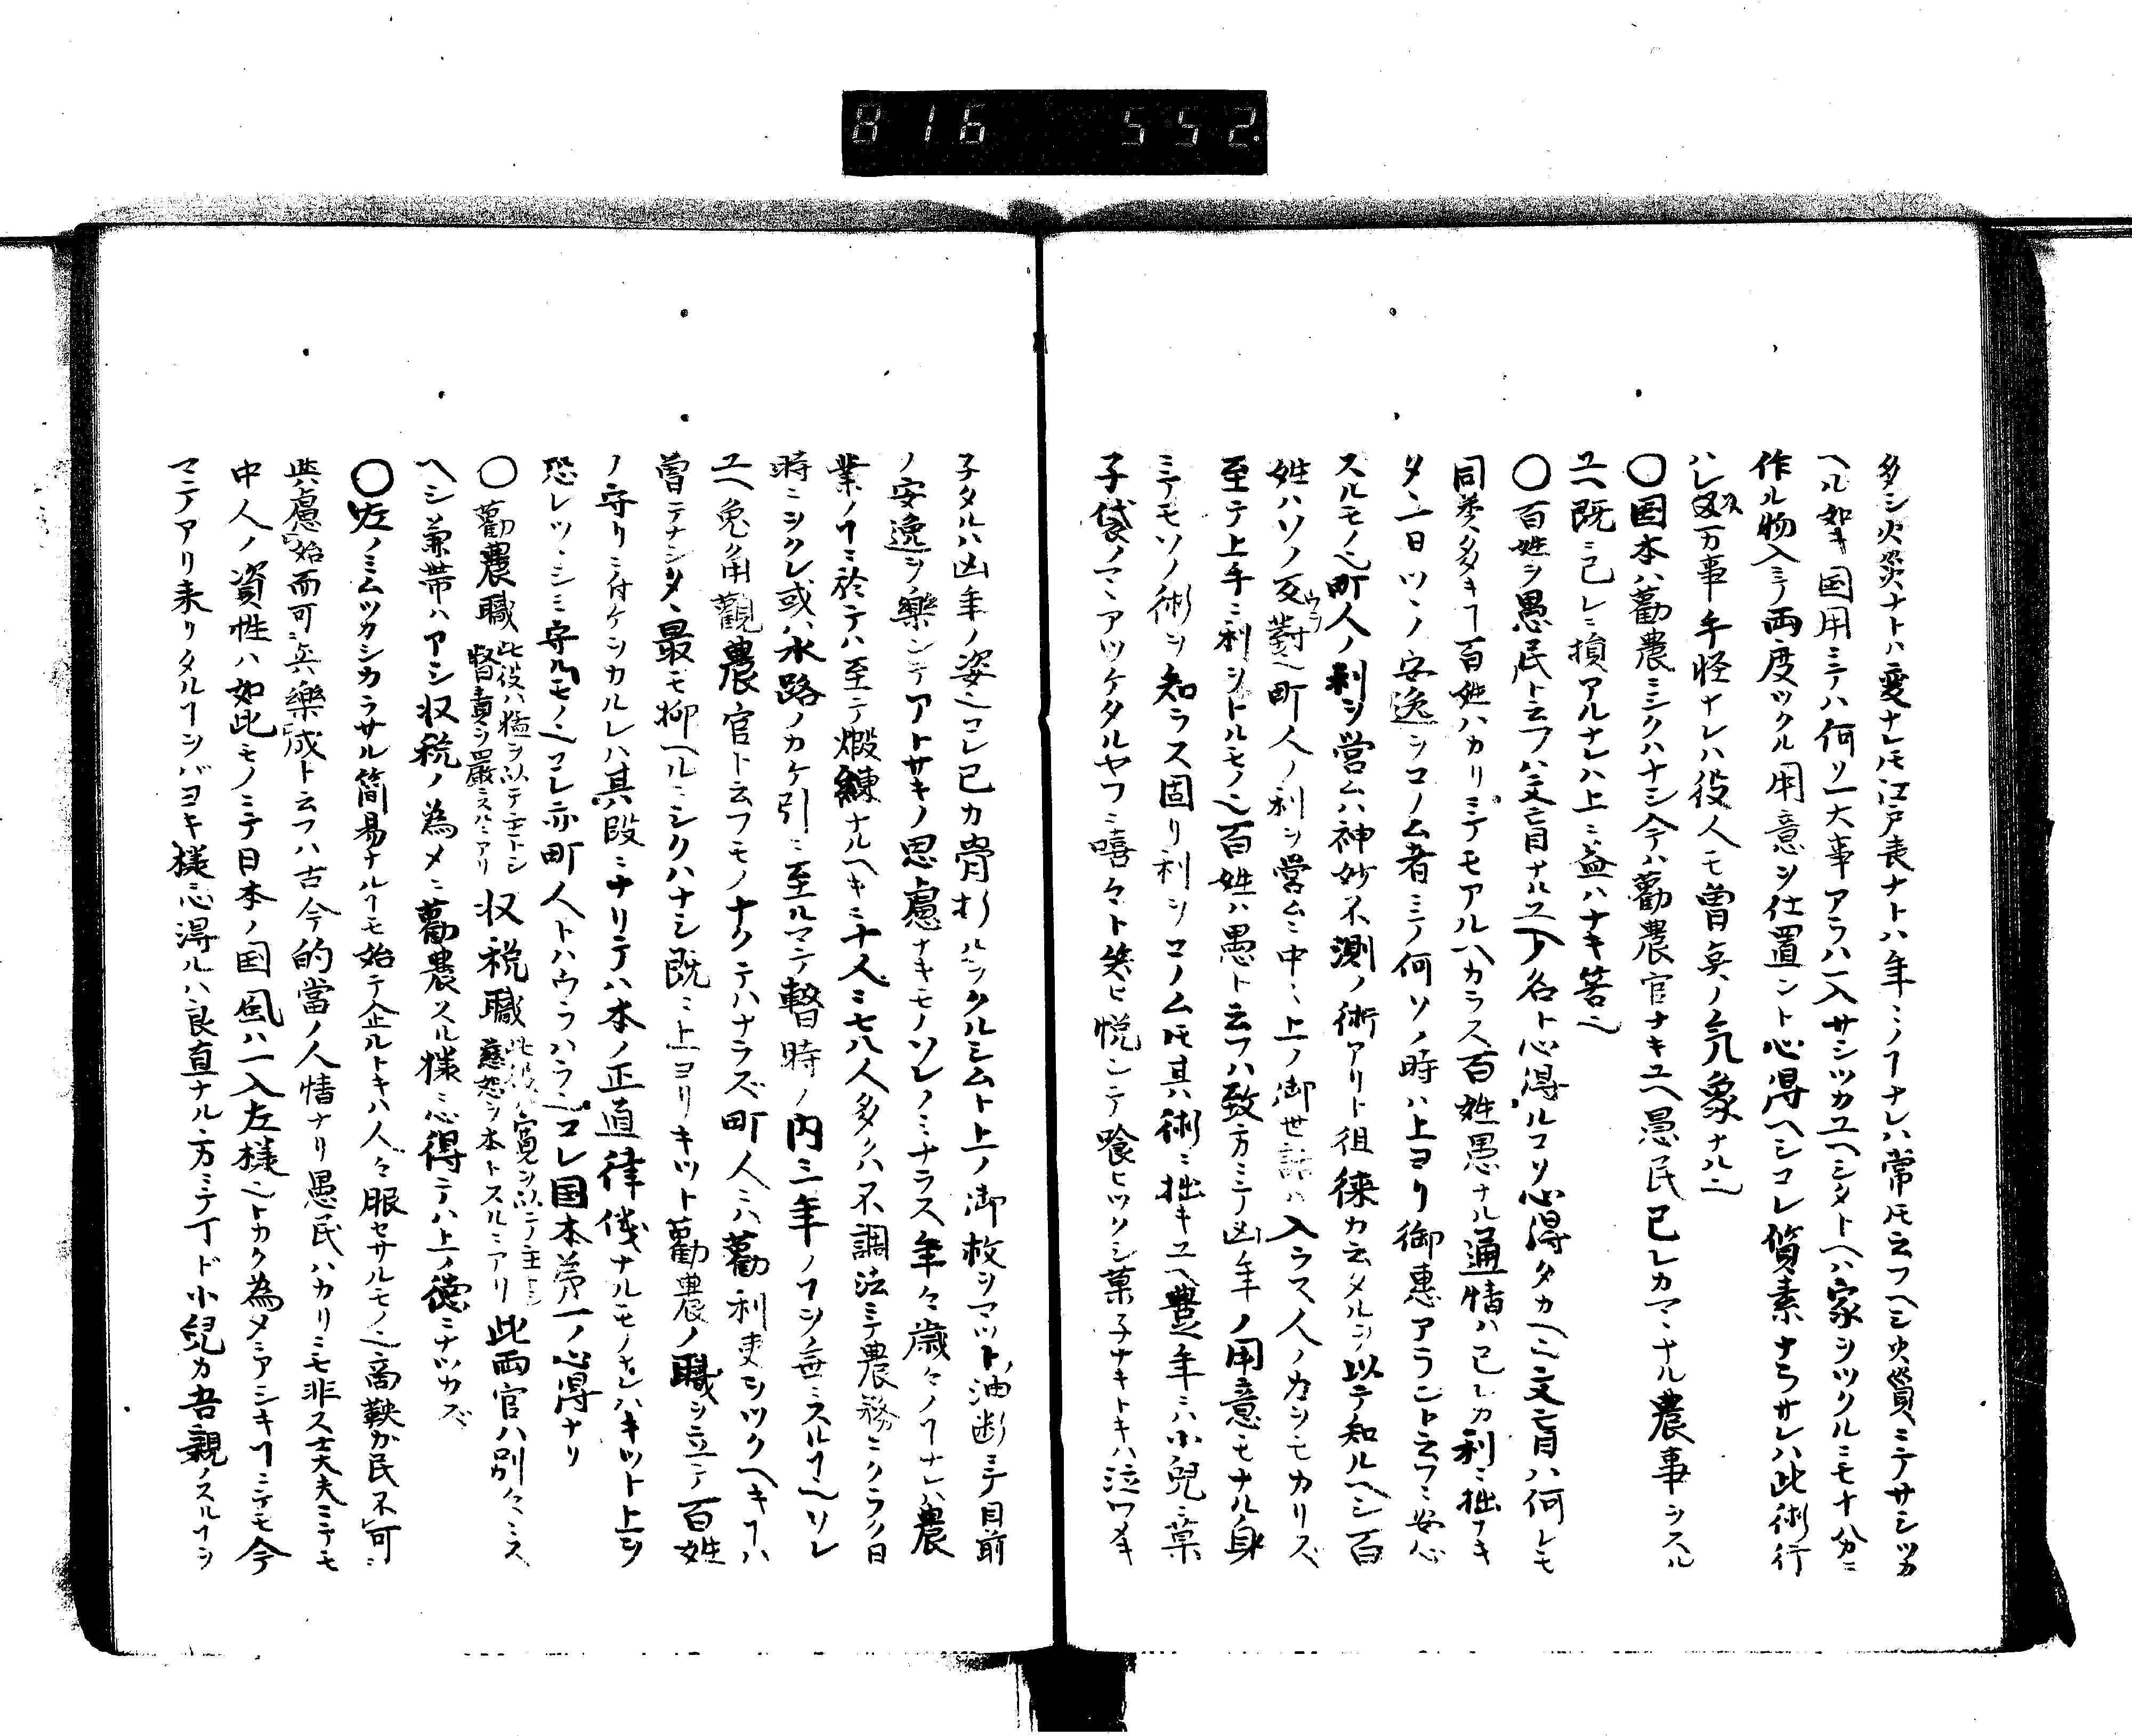 816 552
多シ火災ナトハ変ナレ𪜈江戸表ナトハ年ミノヿナレハ常𪜈云フヘシ火質ミテサシツカ
ヘル如キ国用ミテハ何ソ一大事アラハ一入サシツカユヘシタトヘハ家ヲツクルミモ十分ニ
作ル物入ミテ両度ツクル用意ヲ仕置ント心得ヘシコレ質素ナラサレハ此術行
ハレ又万事手怪ナレハ役人モ曽テ失ノ気象ナル也
〇国本ハ勧農ミシクハナシ今ハ勧農官ナキユヘ愚民己レカマヽナル農事ヲスル
ユヘ既ミ己レミ損アルナレハ上ミ益ハナキ筈也
〇百姓ヲ愚民ト云フハ文盲ナルユヘノ名ト心得ルコソ心得タカヘ也文盲ハ何レモ
同類多キヿ百姓ハカリミテモアルヘカラス百姓愚ナル通情ハ己レカ利ミ拙ナキ
タヽ一日ツヽノ安逸ヲコノム者ミテ何ソノ時ハ上ヨリ御恵アラント云フミ安心
スルモノ也町人ノ利ヲ営ムハ神妙不測ノ術アリト徂徠カ云タルヲ以テ知ルヘシ百
姓ハソノ反対也町人ノ利ヲ営ムミ中ミ上ノ御世話ハ入ラス人ノカヲモカリズ
至テ上手ミ利ヲトルモノ也百姓ハ愚ト云フハ致方ミテ凶年ノ用意モナル身
ミテモソノ術ヲ知ラス固リ利ヲコノム𪜈其術ミ拙キユヘ豊年ミハ小児ミ菓
子袋ノマヽアツケタルヤフミ嘻々ト笑ヒ悦ンテ喰ヒツクシ菓子ナキトキハ泣ワメキ
子タルハ凶年ノ姿也コレ己カ骨折ルヲクルシムト上ノ御救ヲマツト油断ミテ目前
ノ安逸ヲ楽ンテアトサキノ思慮ナキモノソレノミナラス年々歳々ノヿナレハ農
業ノヿミ於テハ至テ煅練ナルヘキミ十人ミ七八人多クハ不調法ミテ農務ミクラク日
時ミヲクレ或ハ水路ノカケ引ミ至ルマテ暫時ノ内ミ一年ノヿヲ無ミスルヿ也ソレ
ユヘ兔角観農官ト云フモノナクテハナラズ町人ミハ勧利吏ヲツクヘキヿハ
曽テナシタヽ最モ抑ヘルミシクハナシ既ミ上ヨリキット勧農ノ職ヲ立テ百姓
ノ守リミ付ケヲカルレハ其段ミナリテハ本ノ正直律儀ナルモノナレハキット上ヲ
恐レツヽシミ守ルモノ也コレ亦町人トハウラハラ也コレ国本第一ノ心得ナリ
〇勧農職 此役ハ猛ヲ以テ主トシ督責ヲ厳ミスルミアリ 収税職 此役ハ寛ヲ以テ主トシ慈恕ヲ本トスルミアリ 此両官ハ別々ミス
ヘシ兼帯ハアシ収税ノ為メミ勧農スル様ミ心得テハ上ノ徳ミナツカズ
〇左ノミムツカシカラサル簡易ナルヿモ始テ企ルトキハ人々服セサルモノ也商鞅カ民不可ミ
与慮始而可ミ与楽成ト云フハ古今的当ノ人情ナリ愚民ハカリミモ非ス士大夫ミテモ
中人ノ資性ハ如此モノミテ日本ノ国風ハ一入左様也トカク為メミアシキヿミテモ今
マテアリ来リタルヿヲバヨキ様ミ心得ルハ良直ナル方ミテ丁ド小児カ吾親ノスルヿヲ